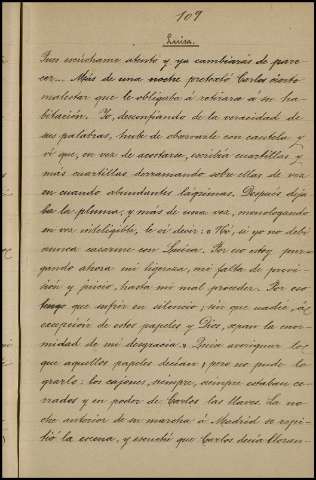 109
Luisa.
Pues escúchame atento y ya cambiarás de pare-
cer... Más de una noche pretextó Carlos cierto
malestar que le obligaba á retirarse á su ha-
bitación. Yo, desconfiando de la veracidad de
sus palabras, hube de observarle con cautela y
vi que, en vez de acostarse, escribía cuartillas y
más cuartillas derramando sobre ellas de vez
en cuando abundantes lágrimas. Después deja-
ba la pluma, y más de una vez, monologando
en voz inteligible, le oí decir: "No, si yo no debí
nunca casarme con Luisa. Por eso estoy pur-
gando ahora mi ligereza, mi falta de previ-
sión y juicio, hasta mi mal proceder. Por eso
tengo que sufrir en silencio, sin que nadie, á
excepción de estos papeles y Dios, sepan la enor-
midad de mi desgracia." Quise averiguar lo
que aquellos papeles decían, pero no pude lo-
grarlo: los cajones, siempre, siempre estaban ce-
rrados y en poder de Carlos las llaves. La no-
che anterior de su marcha á Madrid se repi-
tió la escena, y escuché que Carlos decía lloran-